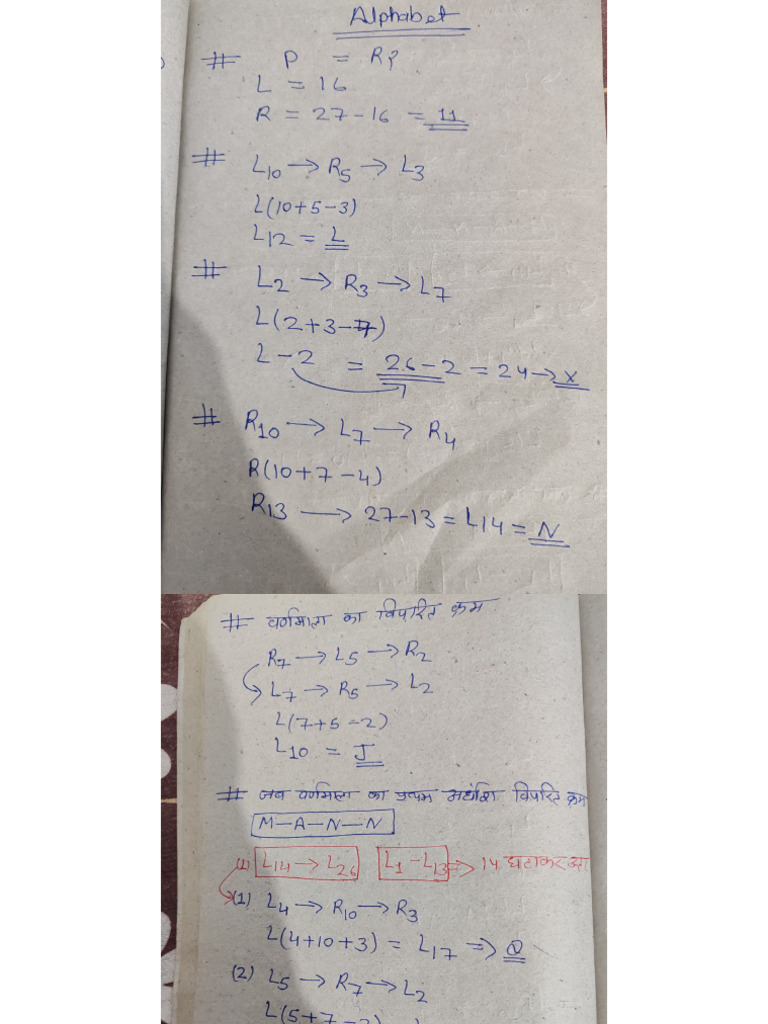 Alphabet
# P = R?
L = 16
R = 27-16 = 11
# L10 → R5 → L3
L(10+5-3)
L12 = L
# L2 → R3 → L7
L(2+3-7)
L-2 = 26-2 = 24 → X
# R10 → L7 → R4
R(10+7-4)
R13 → 27-13 = L14 = N
# वर्णमाला का विपरित क्रम
R7 → L5 → R2
L7 → R5 → L2
L(7+5-2)
L10 = J
# जब वर्णमाला का प्रथम अर्धांश विपरित क्रम
M-A-N-N
(1) L14 → L26 L1-L13 ⇒ 14 घटाकर
(1) L4 → R10 → R3
L(4+10+3) = L17 ⇒ Q
(2) L5 → R7 → L2
L(5+7-2)